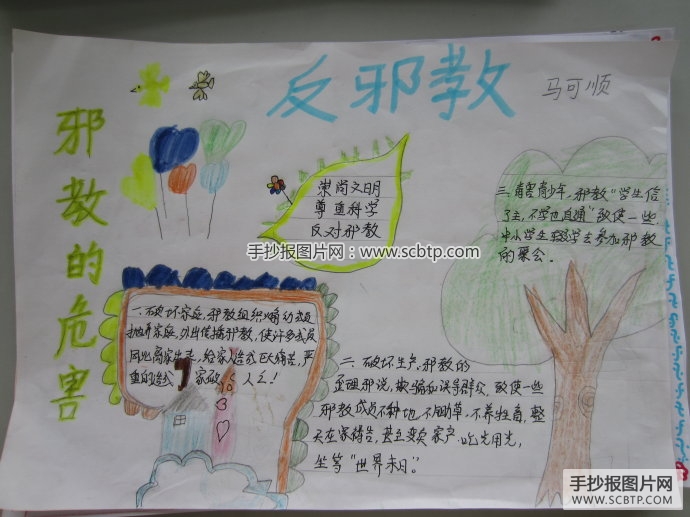 反邪教
马可顺
邪教的危害
崇尚文明
尊重科学
反对邪教
手抄报图片网：www.scbtp.com
三、毒害青少年，邪教“学生信
了主，不学也自通”致使一些
中小学生辍学去参加邪教
的聚会。
一、破坏家庭，邪教组织煽动教员
抛弃家庭，外出传播邪教，使许多成员
因此离家出走，给家人造成巨大痛苦，严
重的造成家破人亡！
二、破坏生产，邪教的
歪理邪说，欺骗和误导群众，致使一些
邪教成员不种地，不锄草，不养牲畜，整
天在家祷告，甚至变卖家产，吃光用光，
坐等“世界末日”。
手抄报图片网
WWW.SCBTP.COM